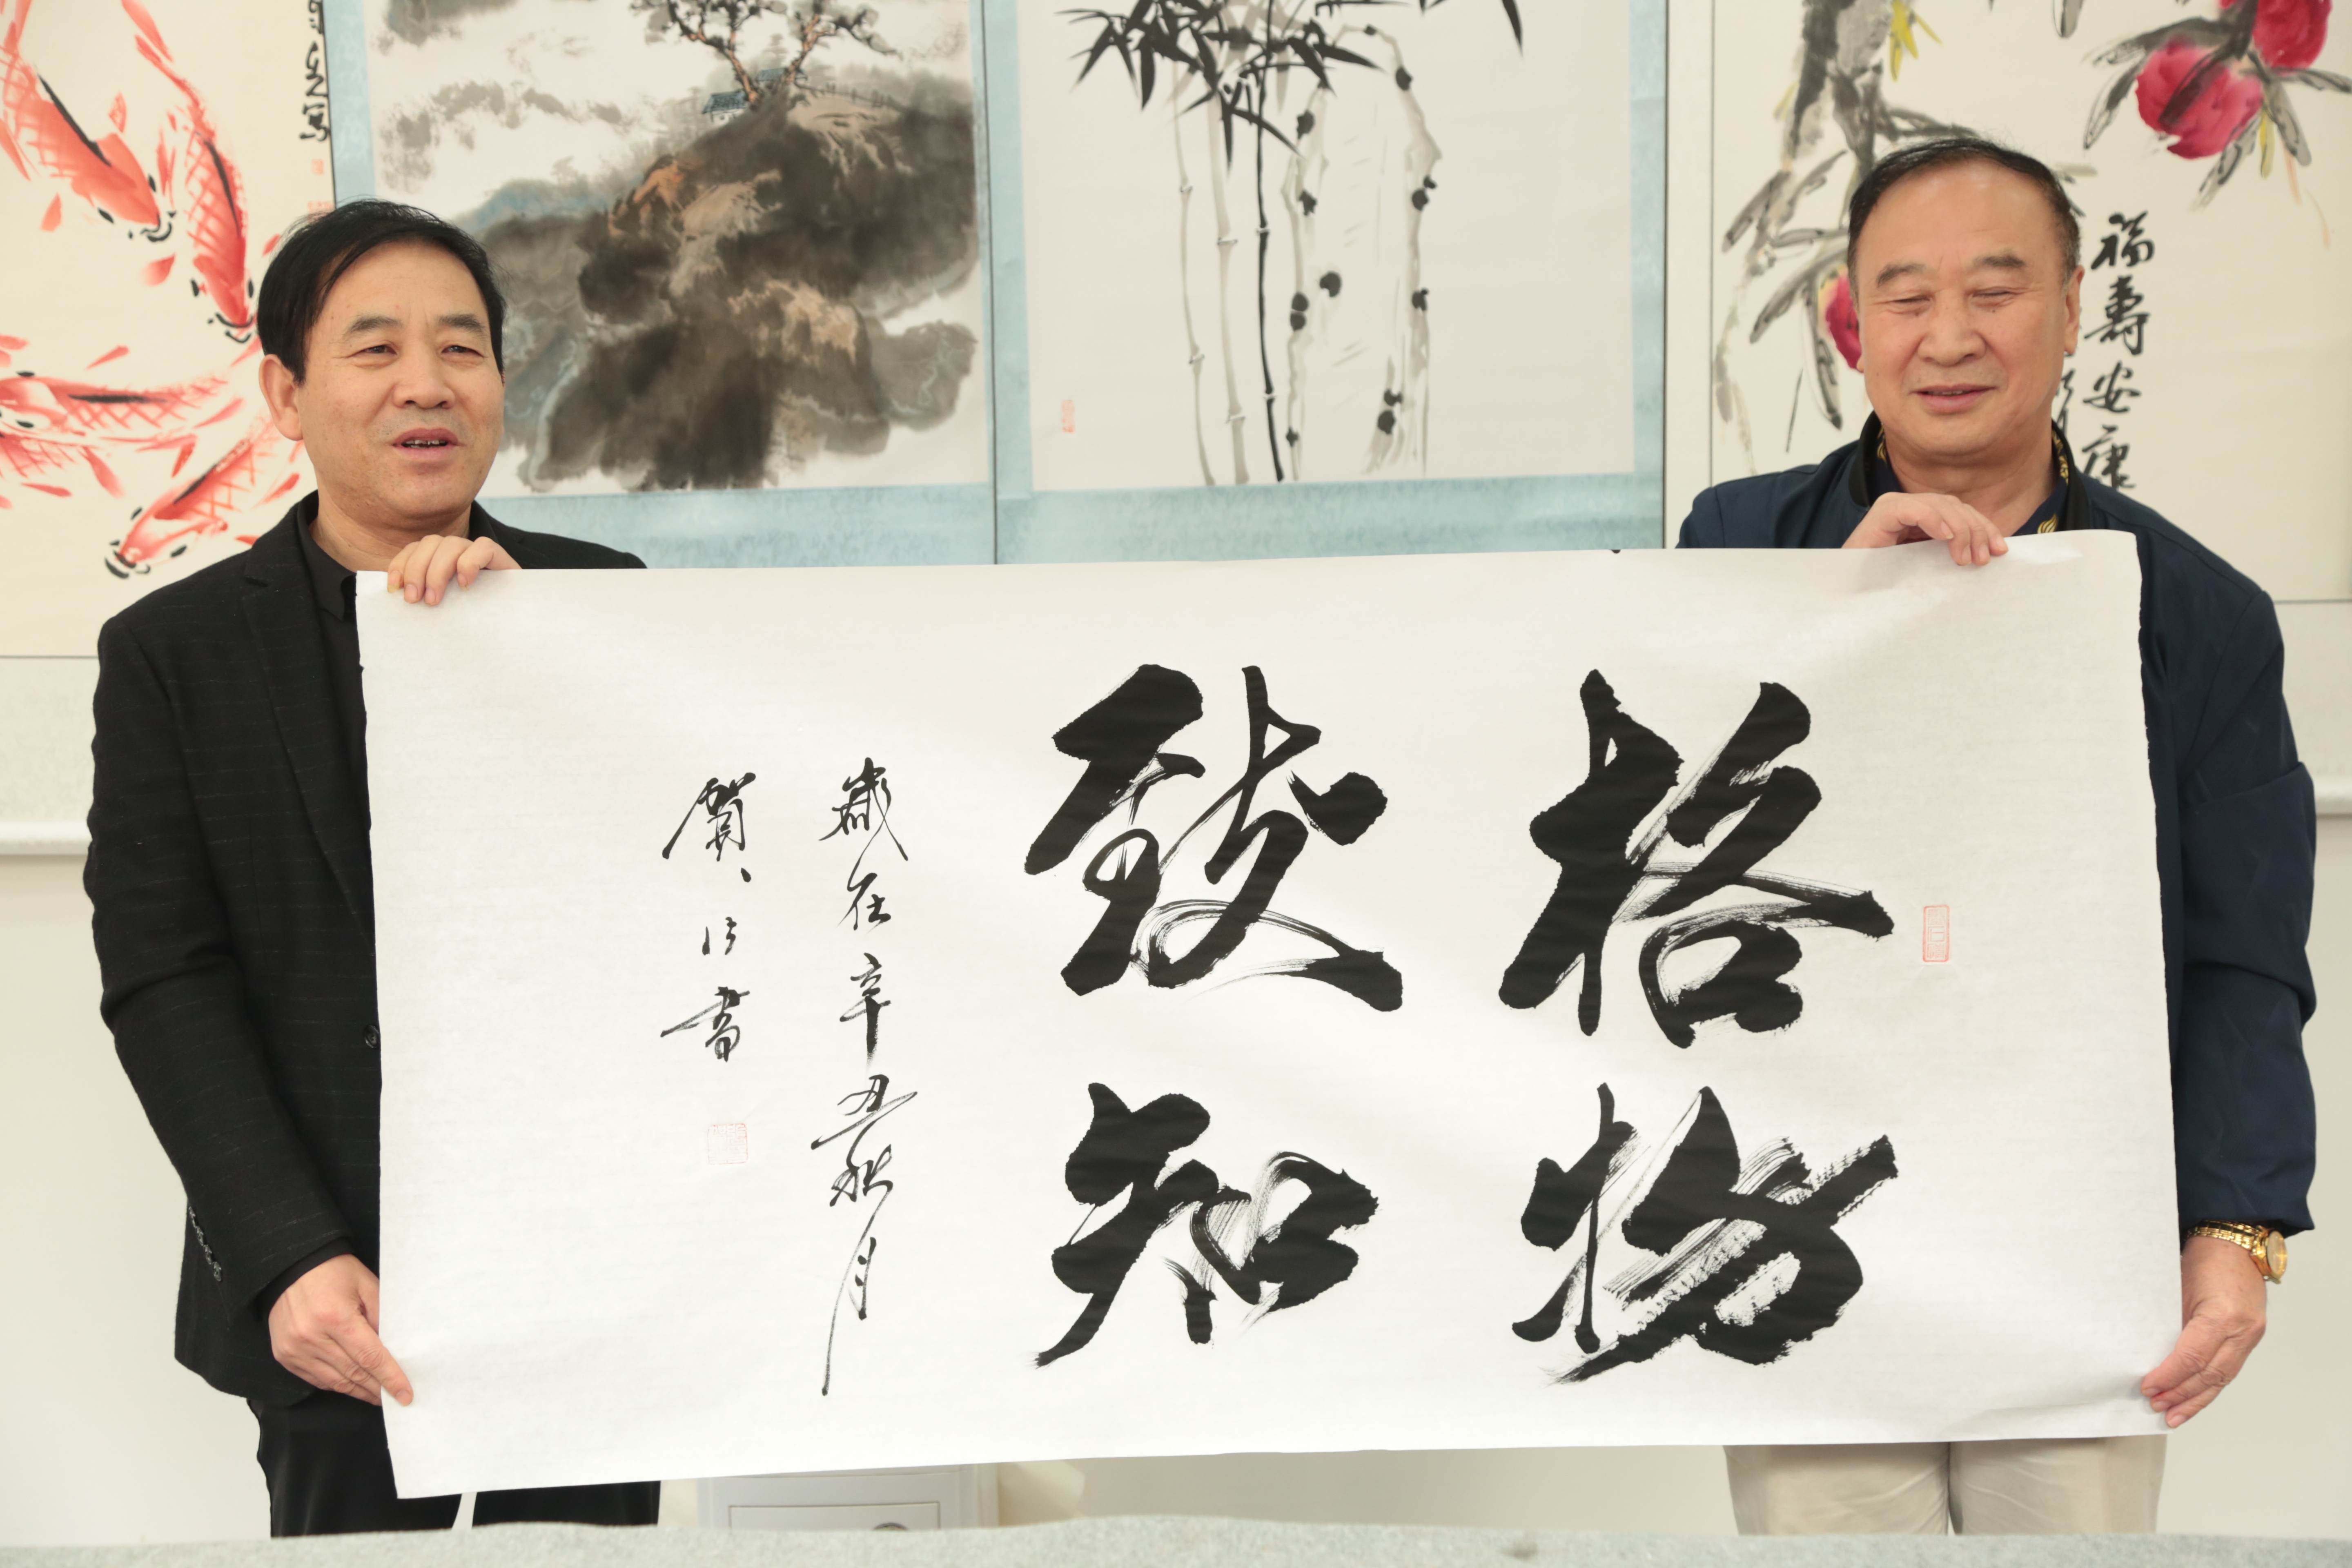 格物
致知
歲在辛丑秋月
賀 書
福壽安康